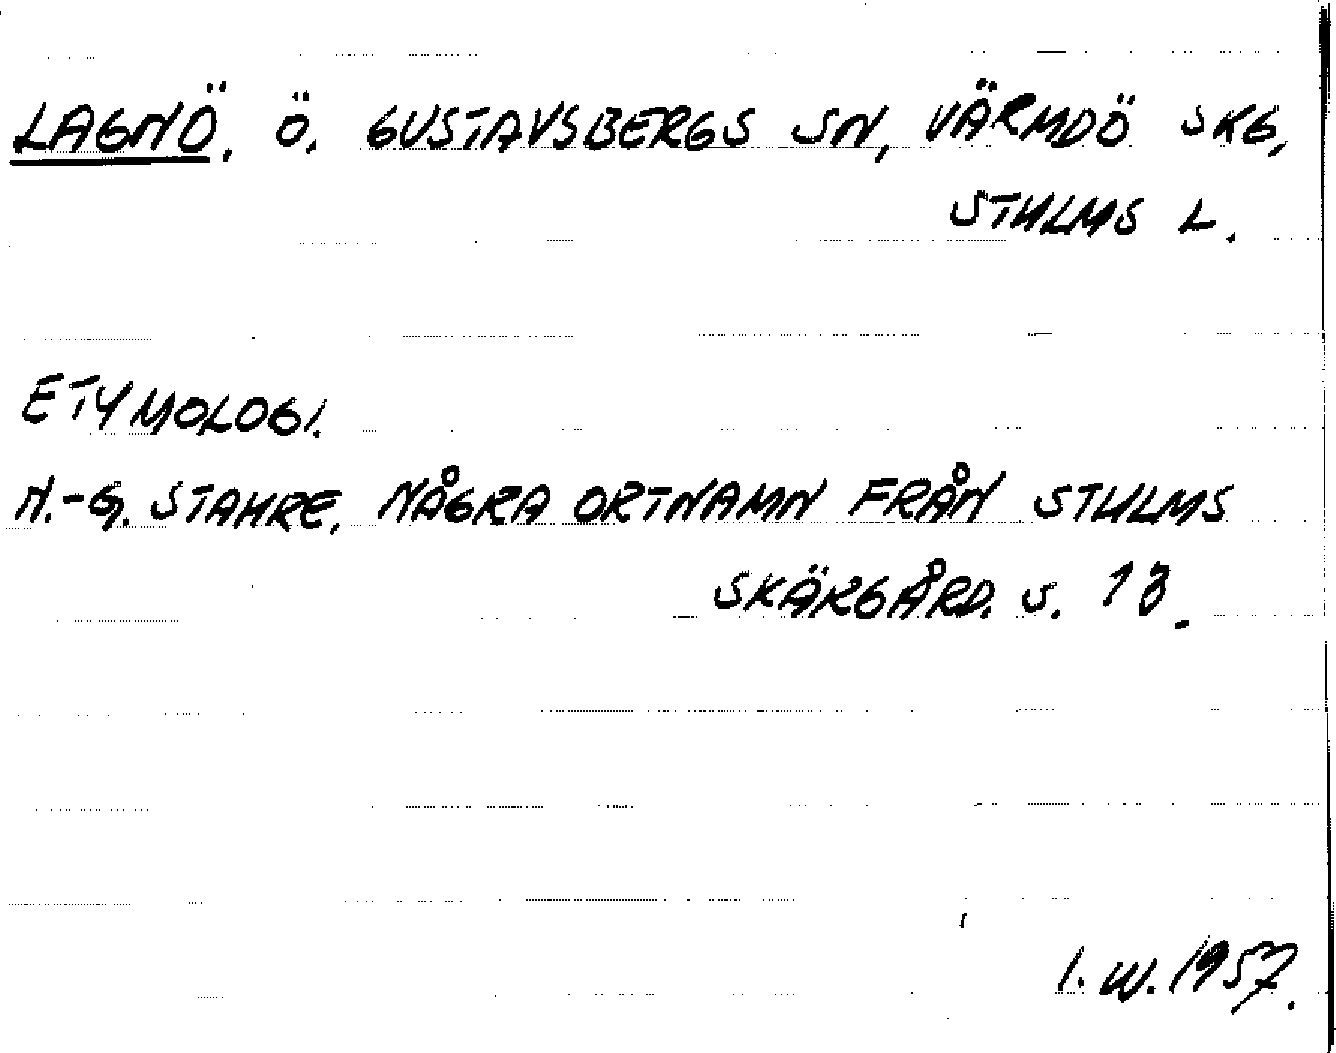 LAGNÖ, Ö, GUSTAVSBERGS SN, VÄRMDÖ SKG,
STHLMS L.
ETYMOLOGI.
N.-G. STAHRE, NÅGRA ORTNAMN FRÅN STHLMS
SKÄRGÅRD. S. 18.
I. W. 1957.